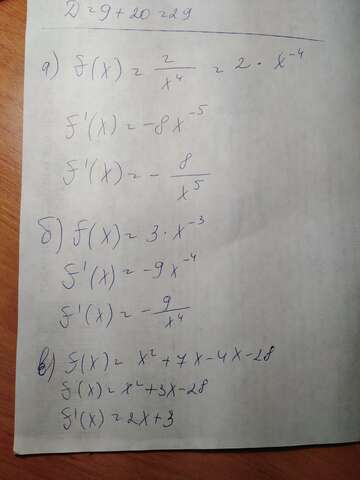 D = 9 + 20 = 29
а) f(x) = 2/x⁴ = 2 · x⁻⁴
f'(x) = -8x⁻⁵
f'(x) = - 8/x⁵
б) f(x) = 3 · x⁻³
f'(x) = -9x⁻⁴
f'(x) = - 9/x⁴
в) f(x) = x² + 7x - 4x - 28
f(x) = x² + 3x - 28
f'(x) = 2x + 3